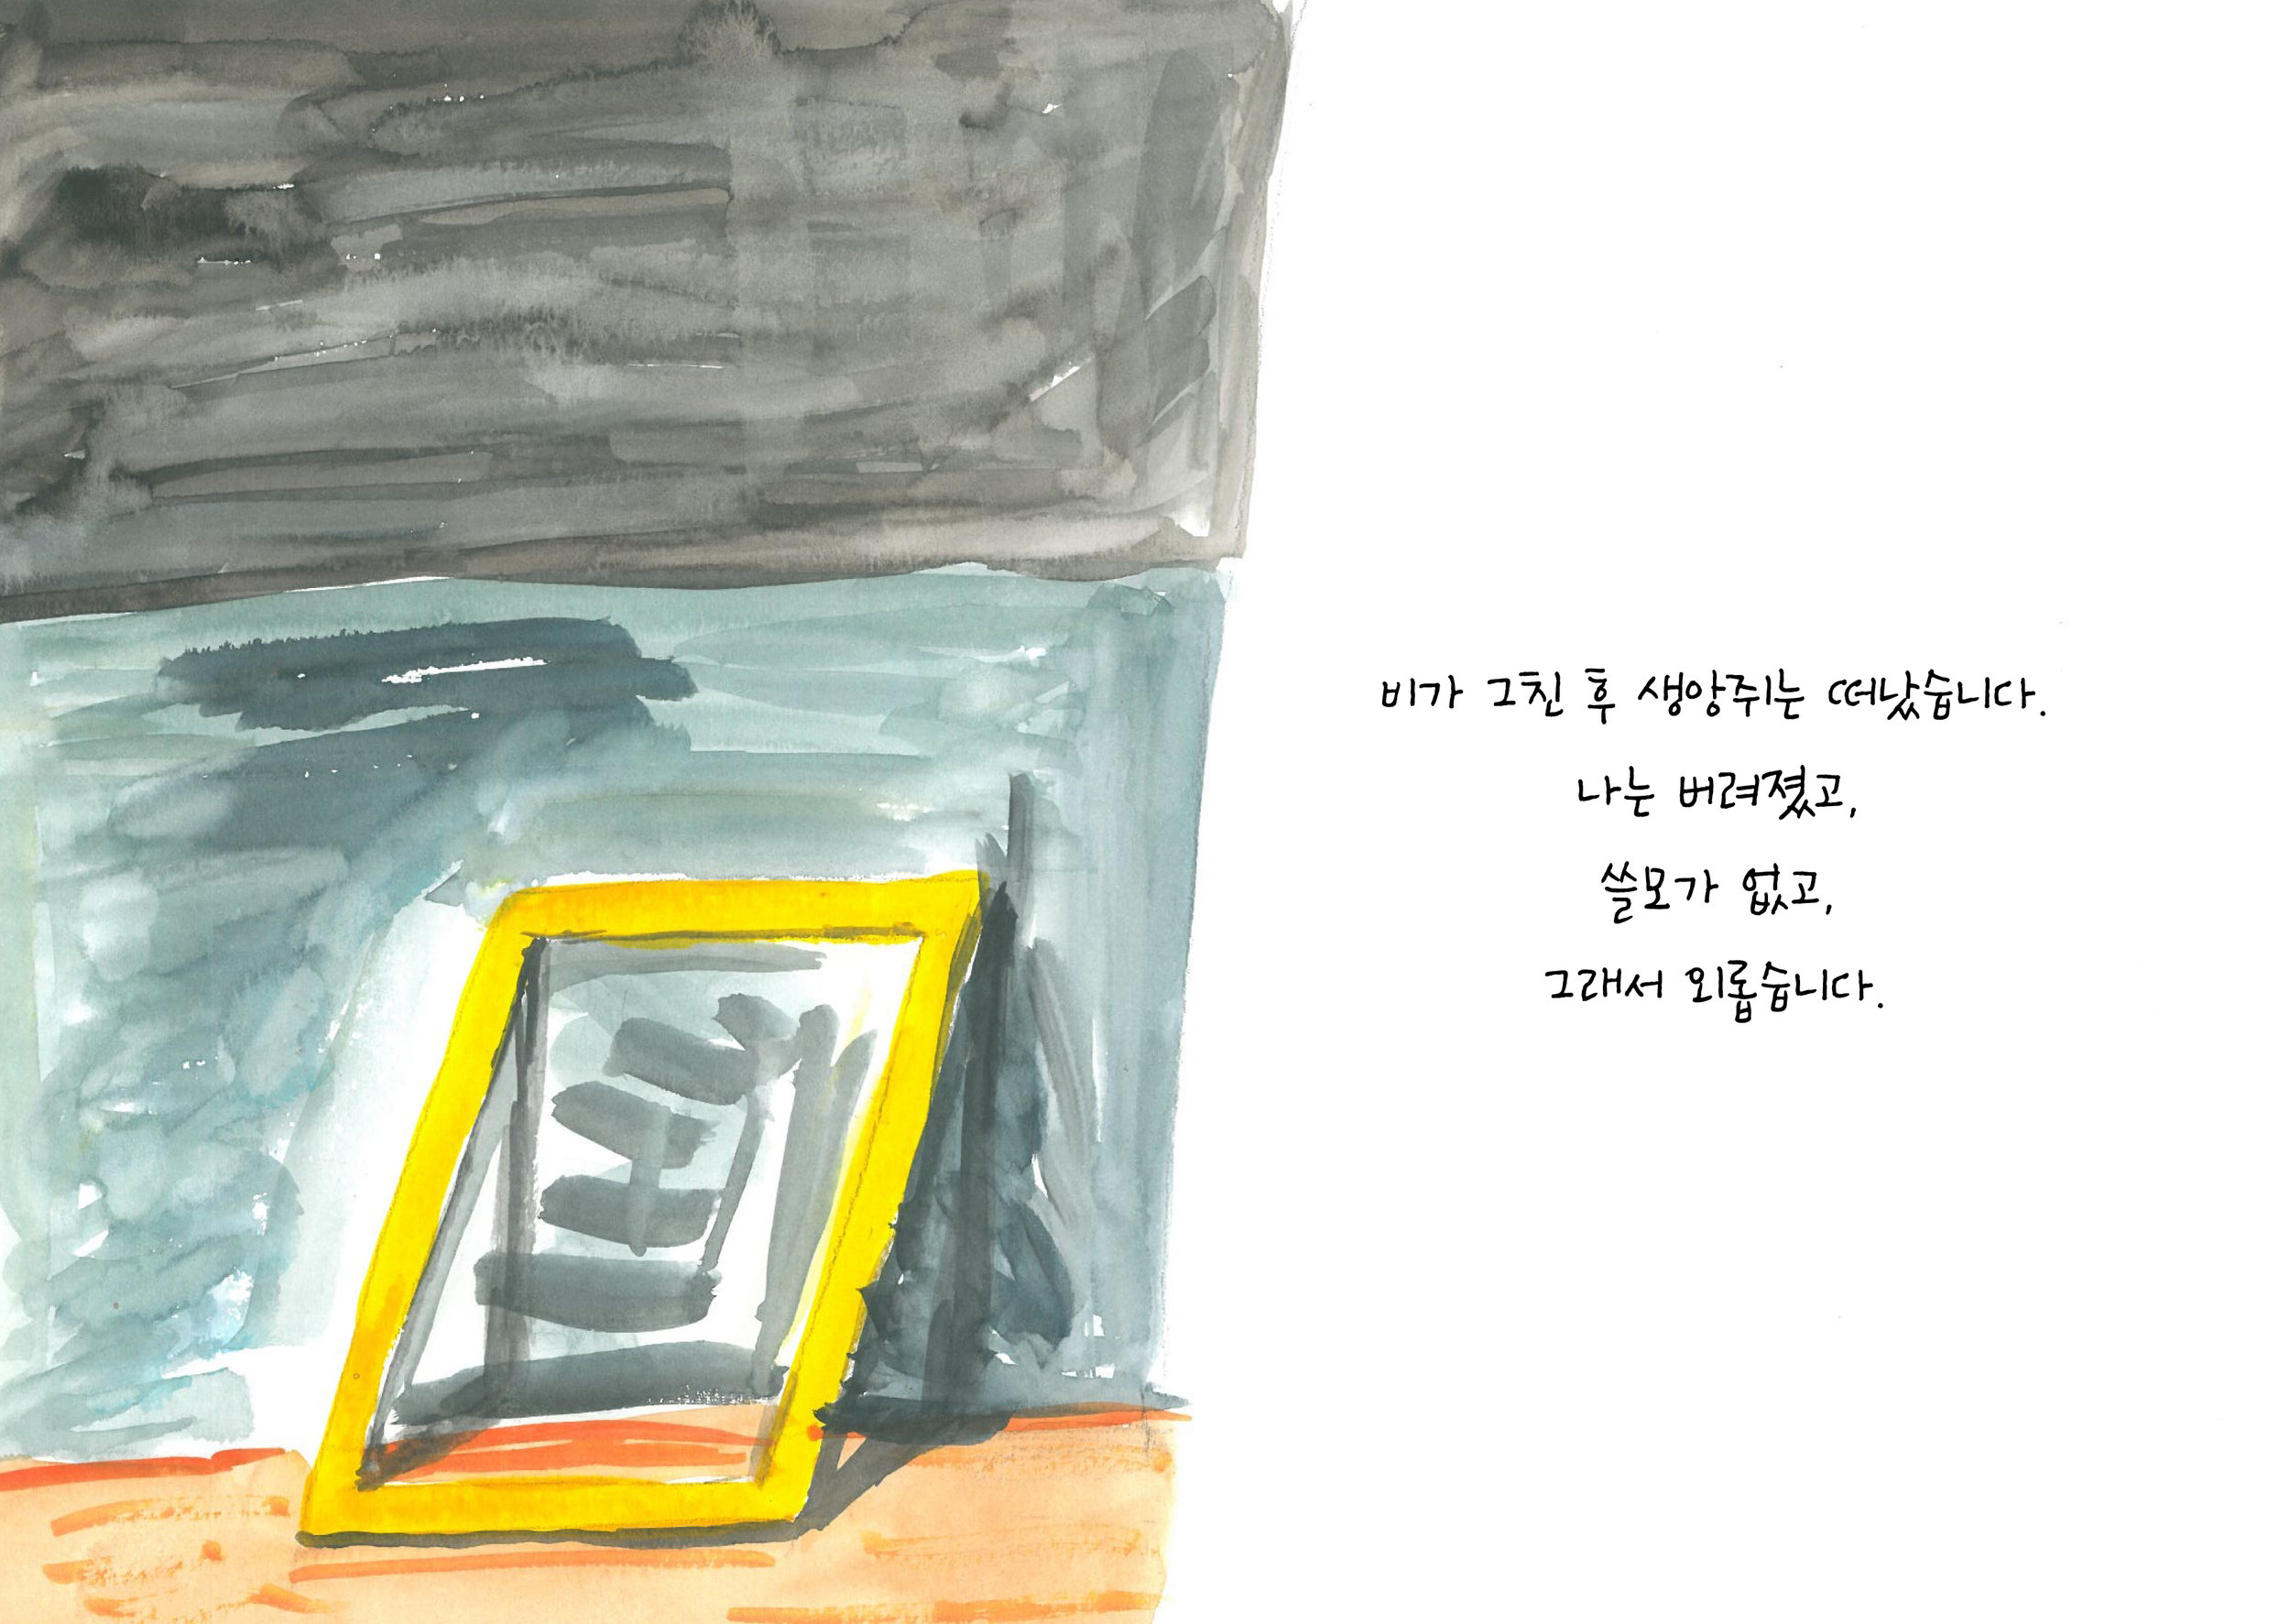 비가 그친 후 생앙쥐는 떠났습니다.
나는 버려졌고,
쓸모가 없고,
그래서 외롭습니다.